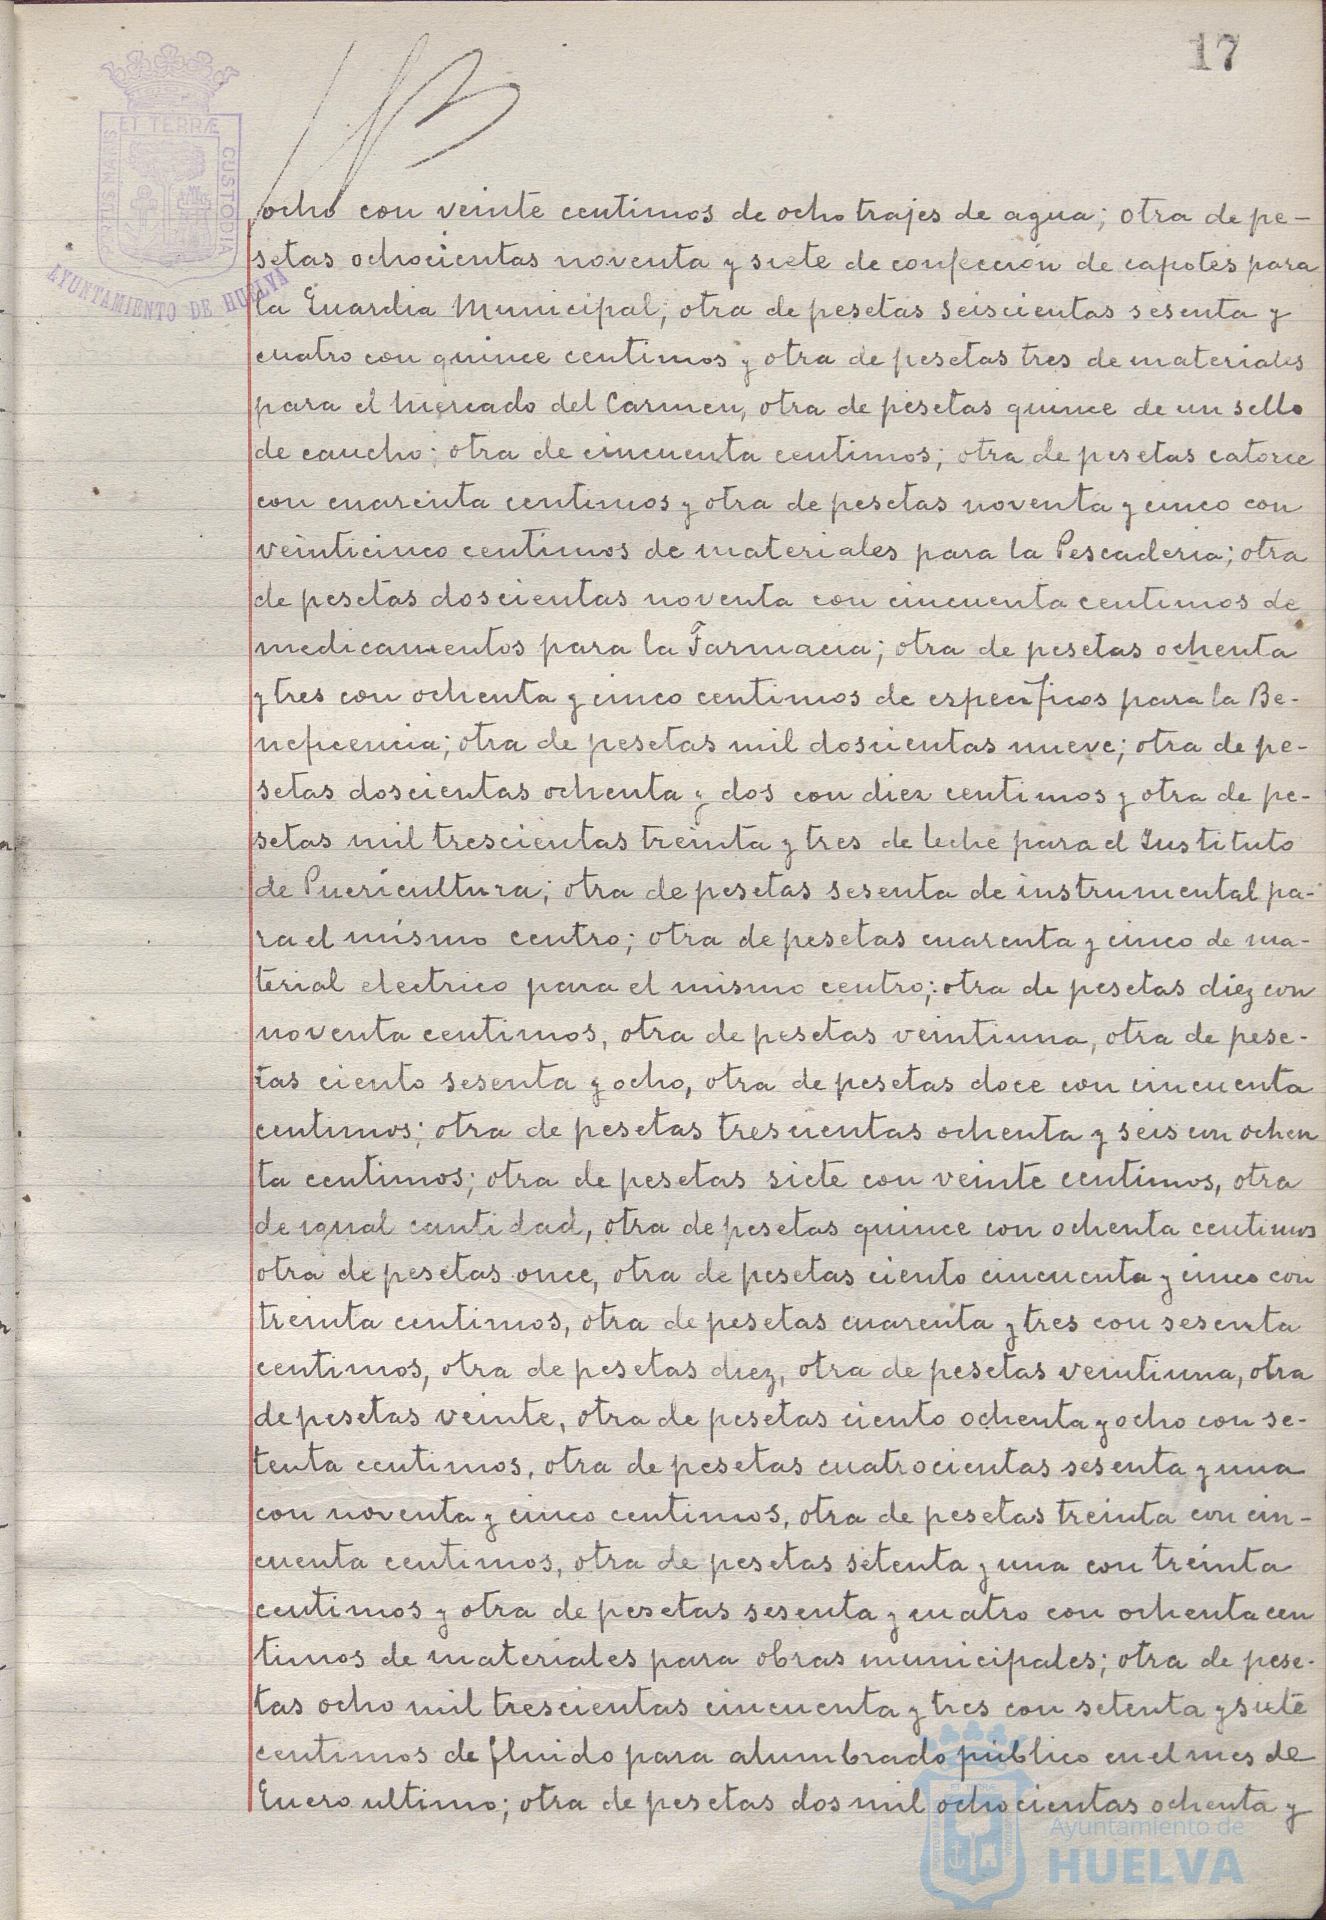 17
ET TERRÆ
CUSTODIA
AYUNTAMIENTO DE HUELVA
ocho con veinte centimos de ocho trajes de agua; otra de pe-
setas ochocientas noventa y siete de confección de capotes para
la Guardia Municipal; otra de pesetas seiscientas sesenta y
cuatro con quince centimos y otra de pesetas tres de materiales
para el Mercado del Carmen, otra de pesetas quince de un sello
de caucho; otra de cincuenta centimos; otra de pesetas catorce
con cuarenta centimos y otra de pesetas noventa y cinco con
veinticinco centimos de materiales para la Pescaderia; otra
de pesetas doscientas noventa con cincuenta centimos de
medicamentos para la Farmacia; otra de pesetas ochenta
y tres con ochenta y cinco centimos de especificos para la Be-
neficencia; otra de pesetas mil doscientas nueve; otra de pe-
setas doscientas ochenta y dos con diez centimos y otra de pe-
setas mil trescientas treinta y tres de leche para el Instituto
de Puericultura; otra de pesetas sesenta de instrumental pa-
ra el mismo centro; otra de pesetas cuarenta y cinco de ma-
terial electrico para el mismo centro; otra de pesetas diez con
noventa centimos, otra de pesetas veintiuna, otra de pese-
tas ciento sesenta y ocho, otra de pesetas doce con cincuenta
centimos; otra de pesetas trescientas ochenta y seis con ochen
ta centimos; otra de pesetas siete con veinte centimos, otra
de igual cantidad, otra de pesetas quince con ochenta centimos
otra de pesetas once, otra de pesetas ciento cincuenta y cinco con
treinta centimos, otra de pesetas cuarenta y tres con sesenta
centimos, otra de pesetas diez, otra de pesetas veintiuna, otra
de pesetas veinte, otra de pesetas ciento ochenta y ocho con se-
tenta centimos, otra de pesetas cuatrocientas sesenta y una
con noventa y cinco centimos, otra de pesetas treinta con cin-
cuenta centimos, otra de pesetas setenta y una con treinta
centimos y otra de pesetas sesenta y cuatro con ochenta cen
timos de materiales para obras municipales; otra de pese-
tas ocho mil trescientas cincuenta y tres con setenta y siete
centimos de fluido para alumbrado público en el mes de
Enero ultimo; otra de pesetas dos mil ochocientas ochenta y
Ayuntamiento de
HUELVA